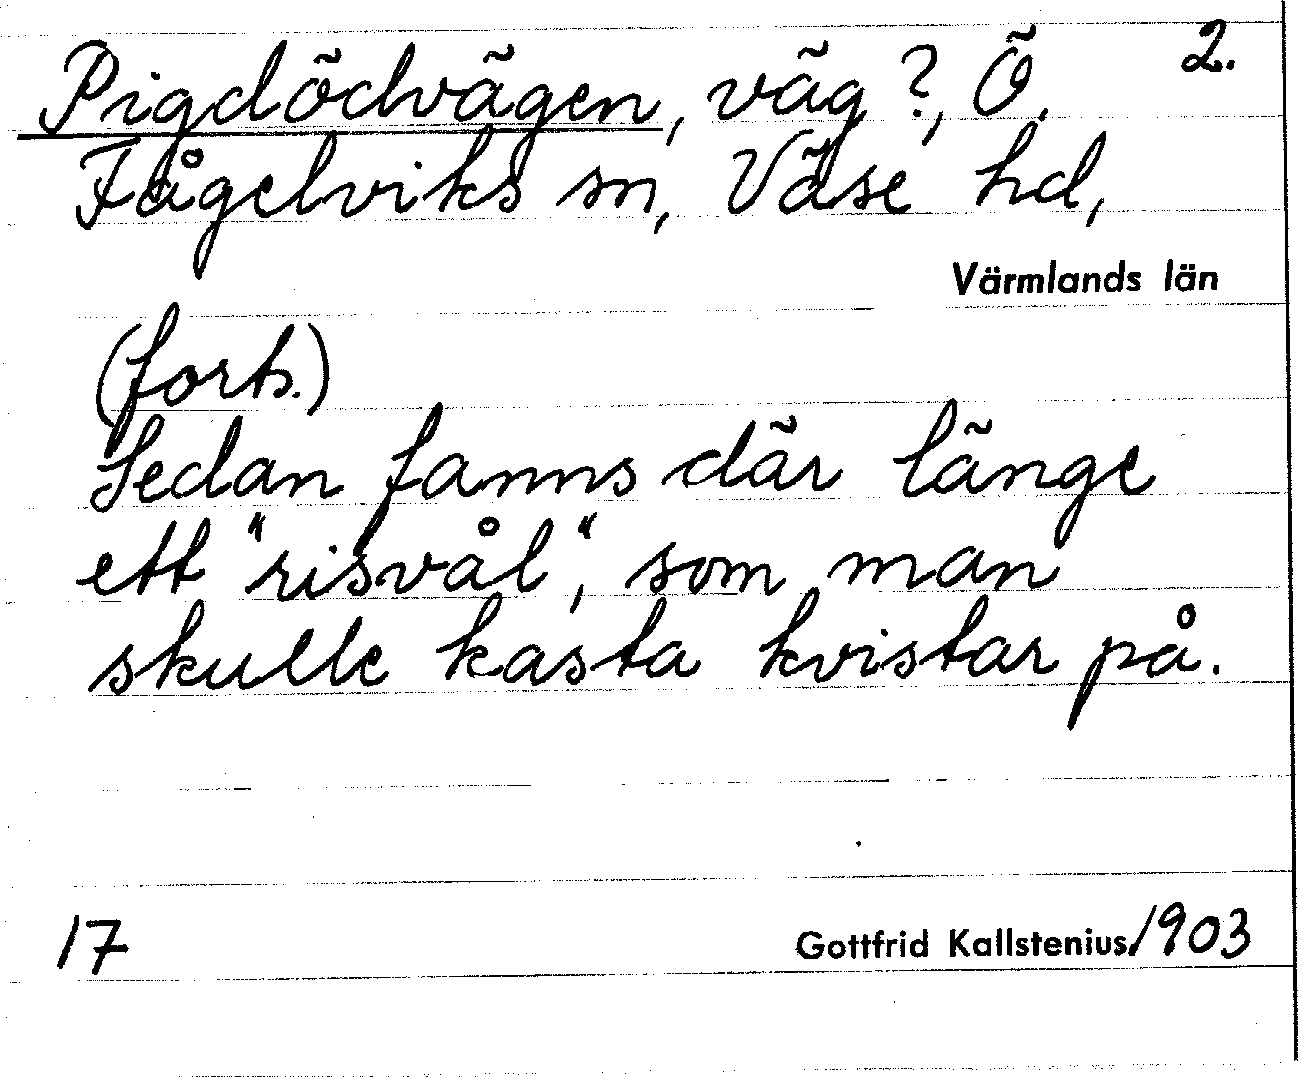 Pigdödvägen, väg?, Ö. 2.
Fågelviks sn, Väse hd,
Värmlands län
(forts.)
Sedan fanns där länge
ett "risvål", som man
skulle kasta kvistar på.
17 Gottfrid Kallstenius/1903